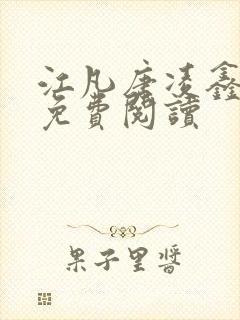 江凡唐凌鑫
免費閱讀
果子里醬